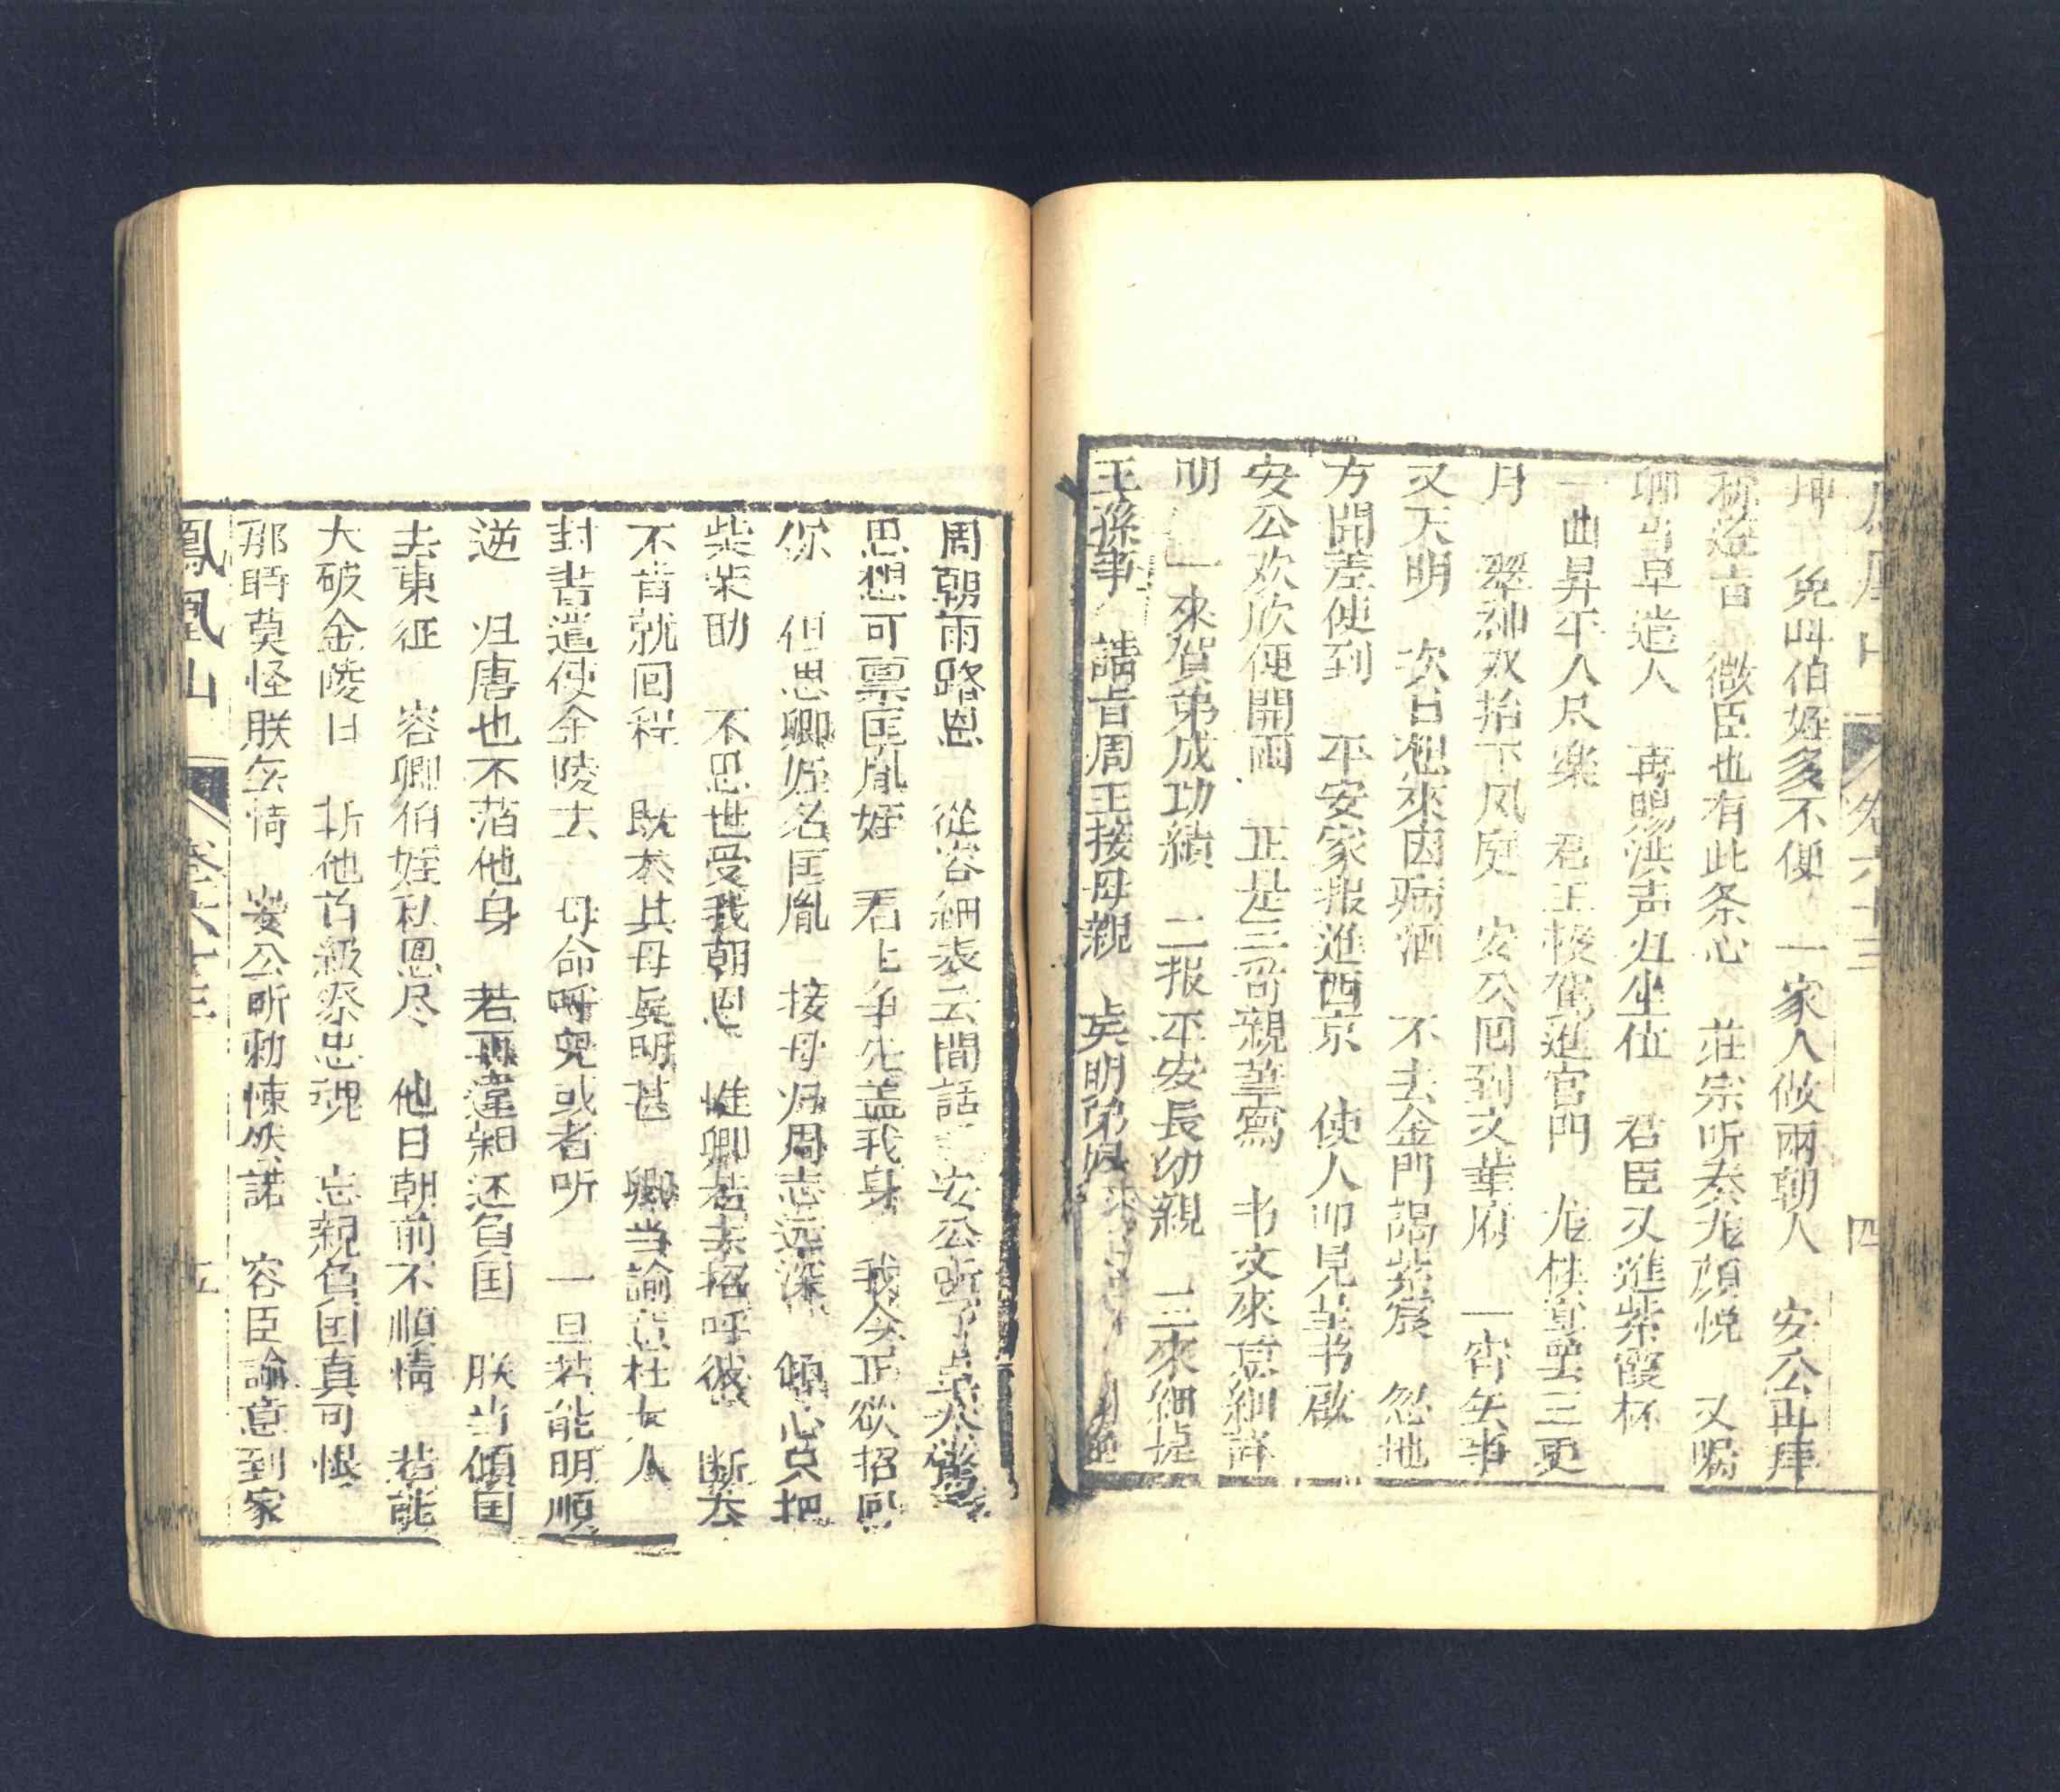 卷六十三 四
免叫伯姪多不便 一家人做兩朝人 安公再拜
称遵旨 微臣也有此条心 莊宗听奏龙顔悦 又嘱
卿当早遣人 再賜洪声归坐位 君臣又進紫霞杯
一曲昇平人尽樂 君王移駕進宫門 三更
月 翠神双抬下凤庭 安公回到文華府 一宵无事
又天明 次日起來因病酒 不去金門謁紫宸 忽地
方開差使到 平安家报進西京 使人叩見呈书啟
安公欢欣便開函 正是三哥親筆寫 书文來意細詳
明 一來賀弟成功績 二报平安長幼親 三來細提
王孫事 請旨周王接母親 明弟
周朝雨路恩 從容細表云間話 安公听了大驚
思想可禀匡胤姪 君上争先盖我身 我今正欲招回
你 但思卿姪名匡胤 接母归周志远深 傾心只把
柴荣助 不思世受我朝恩 惟卿若去招呼彼 断然
不肯就回程 既然其母吳明甚 卿当諭意杜夫人
封書遣使金陵去 母命呼兒或者听 一旦若能明順
逆 归唐也不落他身 若再違親还負国 朕当傾国
去東征 容卿伯姪私恩尽 他日朝前不順情 若能
大破金陵日 斩他首級祭忠魂 忘親負国真可恨
那時莫怪朕无情 安公听勅悚然諾 容臣諭意到家
鳳凰山 卷六十三 五